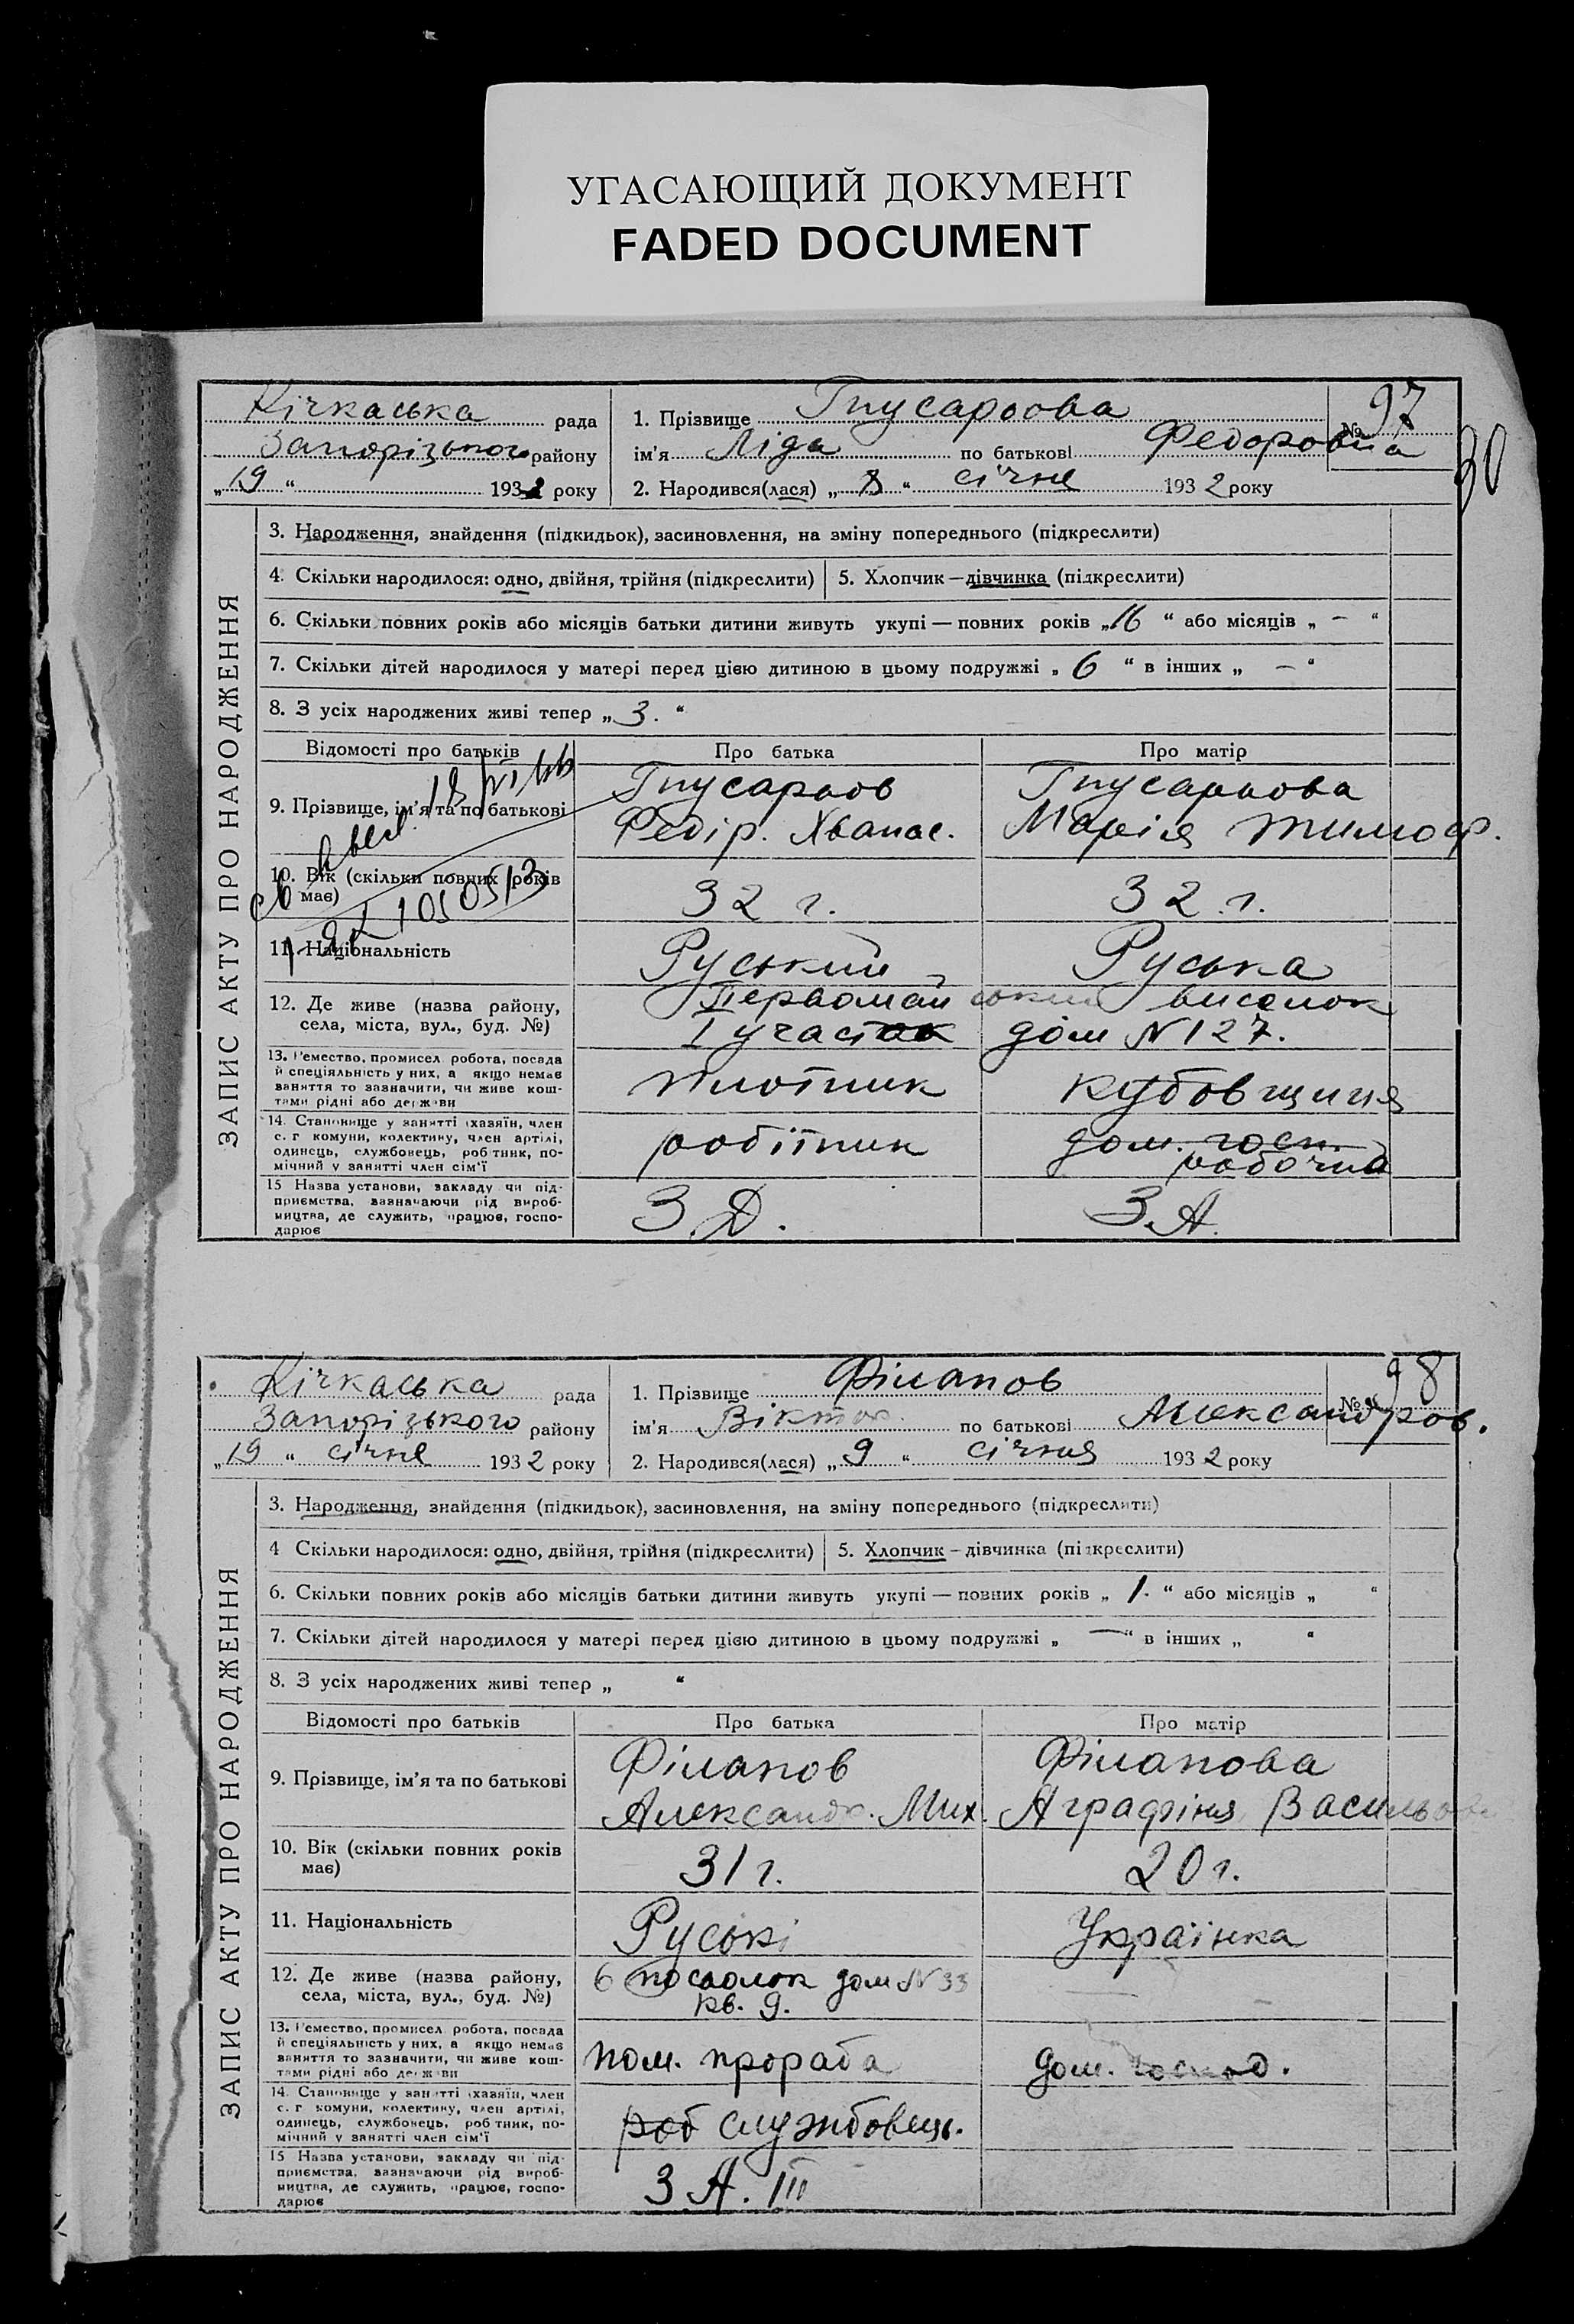 УГАСАЮЩИЙ ДОКУМЕНТ
FADED DOCUMENT
30
ЗАПИС АКТУ ПРО НАРОДЖЕННЯ
Кічкаська рада
Запорізького району
„19“ 1932 року
1. Прізвище
№ 97
ім'я Ліда по батькові Федоровна
2. Народився(лася) „8“ січне 1932 року
3. Народження, знайдення (підкидьок), засиновлення, на зміну попереднього (підкреслити)
4. Скільки народилося: одно, двійня, трійня (підкреслити) 5. Хлопчик—дівчинка (підкреслити)
6. Скільки повних років або місяців батьки дитини живуть укупі — повних років „16“ або місяців „–“
7. Скільки дітей народилося у матері перед цією дитиною в цьому подружжі „6“ в інших „–“
8. З усіх народжених живі тепер „3.“
Відомості про батьків Про батька Про матір
9. Прізвище, ім'я та по батькові
Федір. Хванас. Марія Тимоф.
10. Вік (скільки повних років має) 32 г. 32 г.
11. Національність Руський Руська
12. Де живе (назва району, села, міста, вул., буд. №) Первомайський виселок
I участок дом N 127.
13. Ремество, промисел, робота, посада й спеціяльність у них, а якщо немає заняття то зазначити, чи живе коштами рідні або держави плотник кубовщиця
14. Становище у занятті (хазяїн, член с. г. комуни, колективу, член артілі, одинець, службовець, робітник, помічний у занятті член сім'ї робітник дом. госп.
робочий
15 Назва установи, закладу чи підприємства, зазначаючи рід виробництва, де служить, працює, господарює З Д. З.Д.
ЗАПИС АКТУ ПРО НАРОДЖЕННЯ
Кічкаська рада
Запорізького району
„19“ січне 1932 року
1. Прізвище Філапов
№ 98
ім'я Віктор по батькові Александров.
2. Народився(лася) „9“ січния 1932 року
3. Народження, знайдення (підкидьок), засиновлення, на зміну попереднього (підкреслити)
4 Скільки народилося: одно, двійня, трійня (підкреслити) 5. Хлопчик—дівчинка (підкреслити)
6. Скільки повних років або місяців батьки дитини живуть укупі — повних років „1.“ або місяців „ “
7. Скільки дітей народилося у матері перед цією дитиною в цьому подружжі „—“ в інших „ “
8. З усіх народжених живі тепер „ “
Відомості про батьків Про батька Про матір
9. Прізвище, ім'я та по батькові Філапов Філапова
Александр. Мих. Аграфіня Васильов
10. Вік (скільки повних років має) 31 г. 20 г.
11. Національність Руські Українка
12. Де живе (назва району, села, міста, вул., буд. №) 6 посьолок дом N 33
кв. 9.
13. Ремество, промисел, робота, посада й спеціяльність у них, а якщо немає заняття то зазначити, чи живе коштами рідні або держави пом. прораба дом. господ.
14. Становище у занятті (хазяїн, член с. г. комуни, колективу, член артілі, одинець, службовець, робітник, помічний у занятті член сім'ї роб службовець.
15 Назва установи, закладу чи підприємства, зазначаючи рід виробництва, де служить, працює, господарює З Д. III